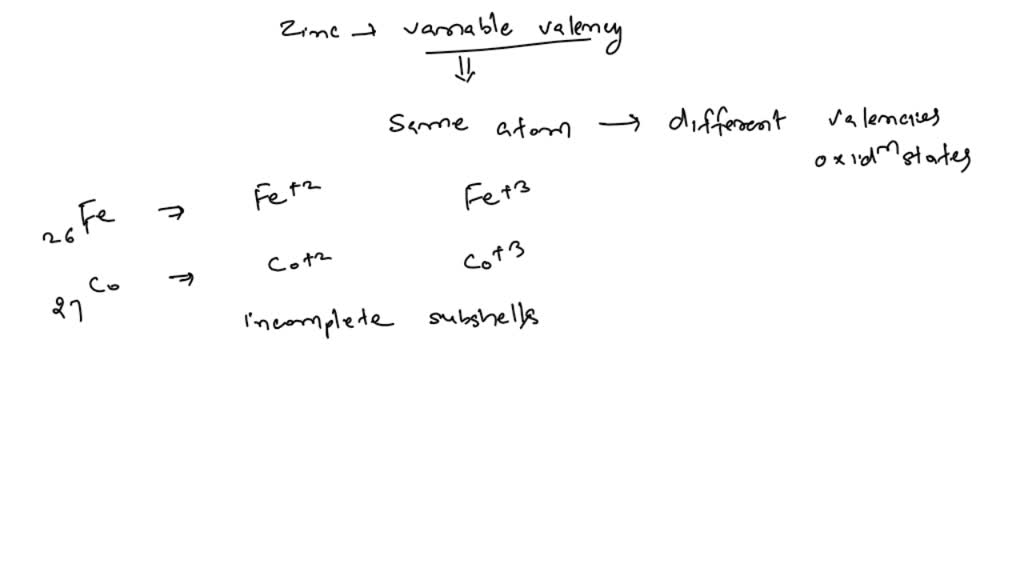 Zinc → variable valency
⇓
Same atom → different valencies
oxidⁿ states
₂₆Fe ⇒ Fe⁺² Fe⁺³
₂₇Co ⇒ Co⁺² Co⁺³
incomplete subshells